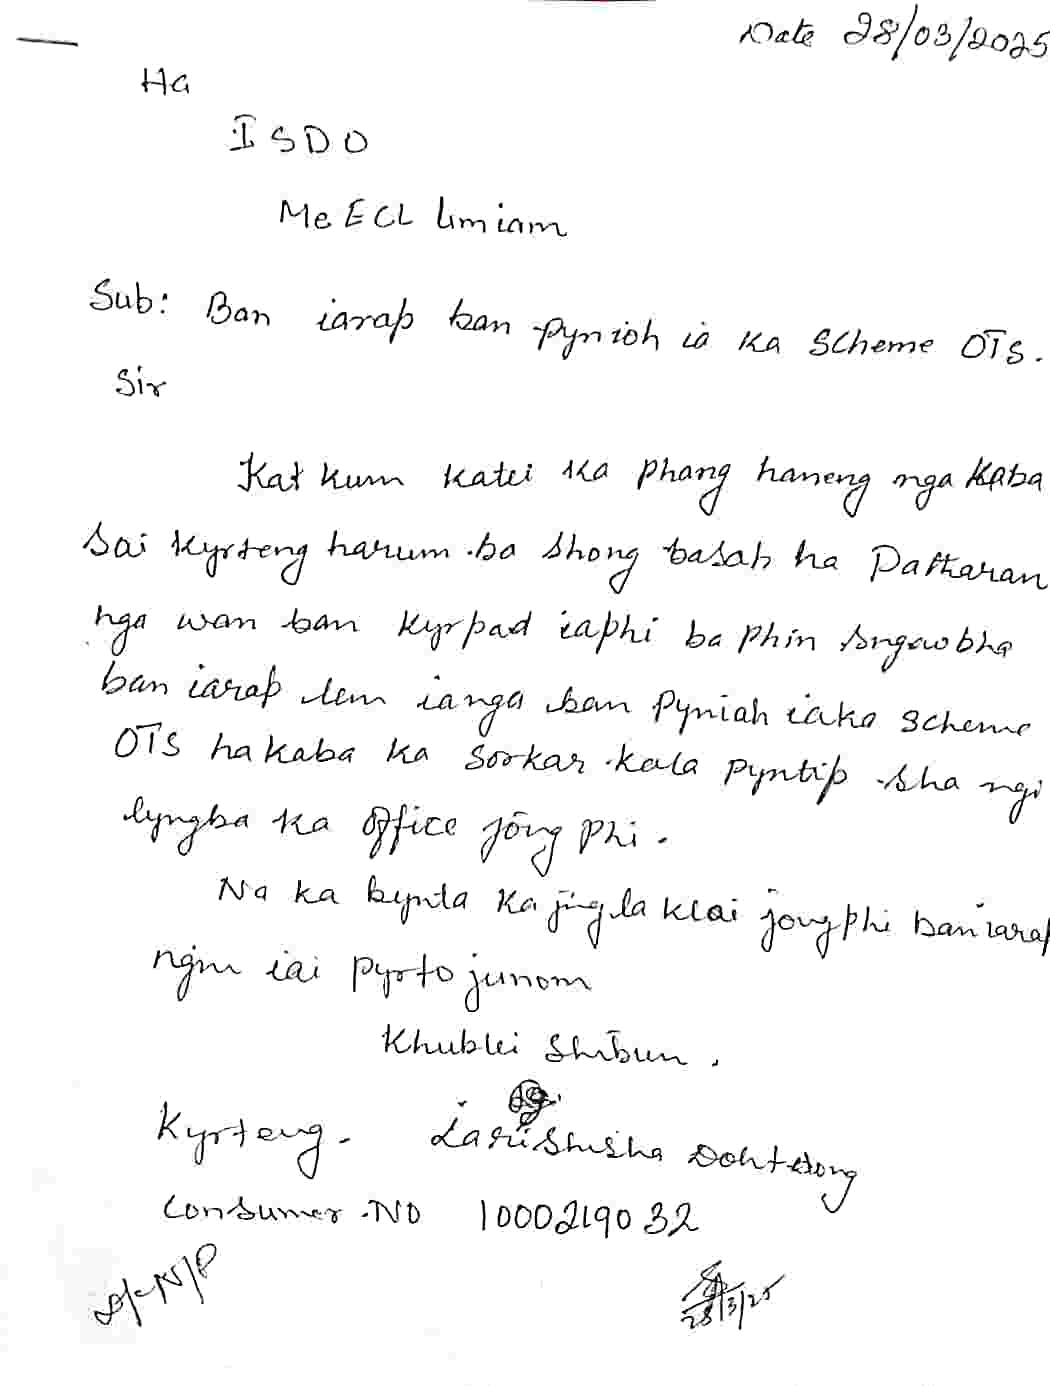 Date 28/03/2025
Ha
I SDO
MeECL Umiam
Sub: Ban iarap ban pynioh ia ka Scheme OTS.
Sir
Kat kum katei ka phang haneng nga kaba
Sai kyrteng harum ba shong basah ha Patharan
nga wan ban kyrpad iaphi ba phin sngewbha
ban iarap lem ianga ban pyniah iaka scheme
OTS ha kaba ka Sorkar kala pyntip sha ngi
lyngba ka office jong phi.
Na ka bynta ka jingla klai jong phi ban iarap
ngin iai pyrto junom
Khublei Shibun.
Kyrteng - Larishisha Dohtdong
Consumer NO 1000219032
N/P
28/3/25